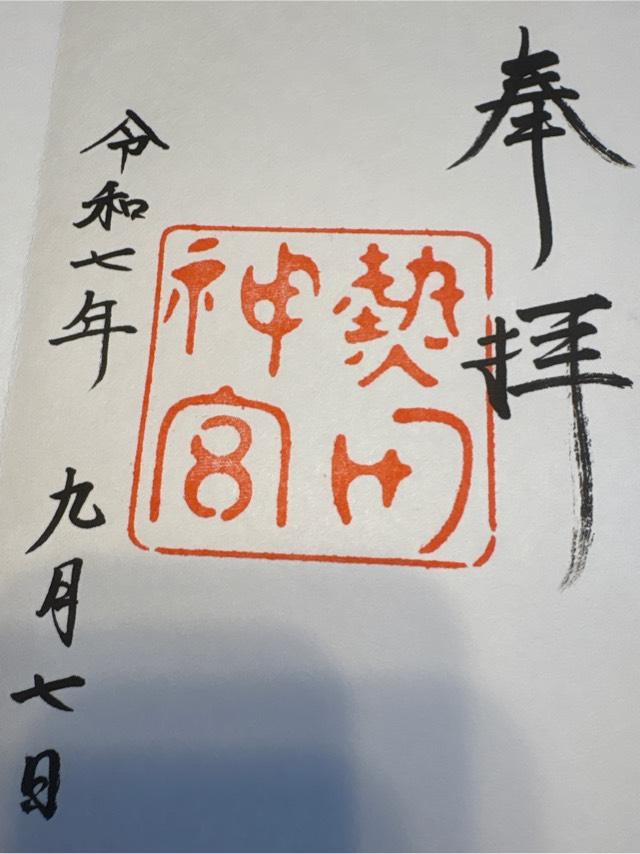 奉拝
熱田
神宮
令和七年 九月七日